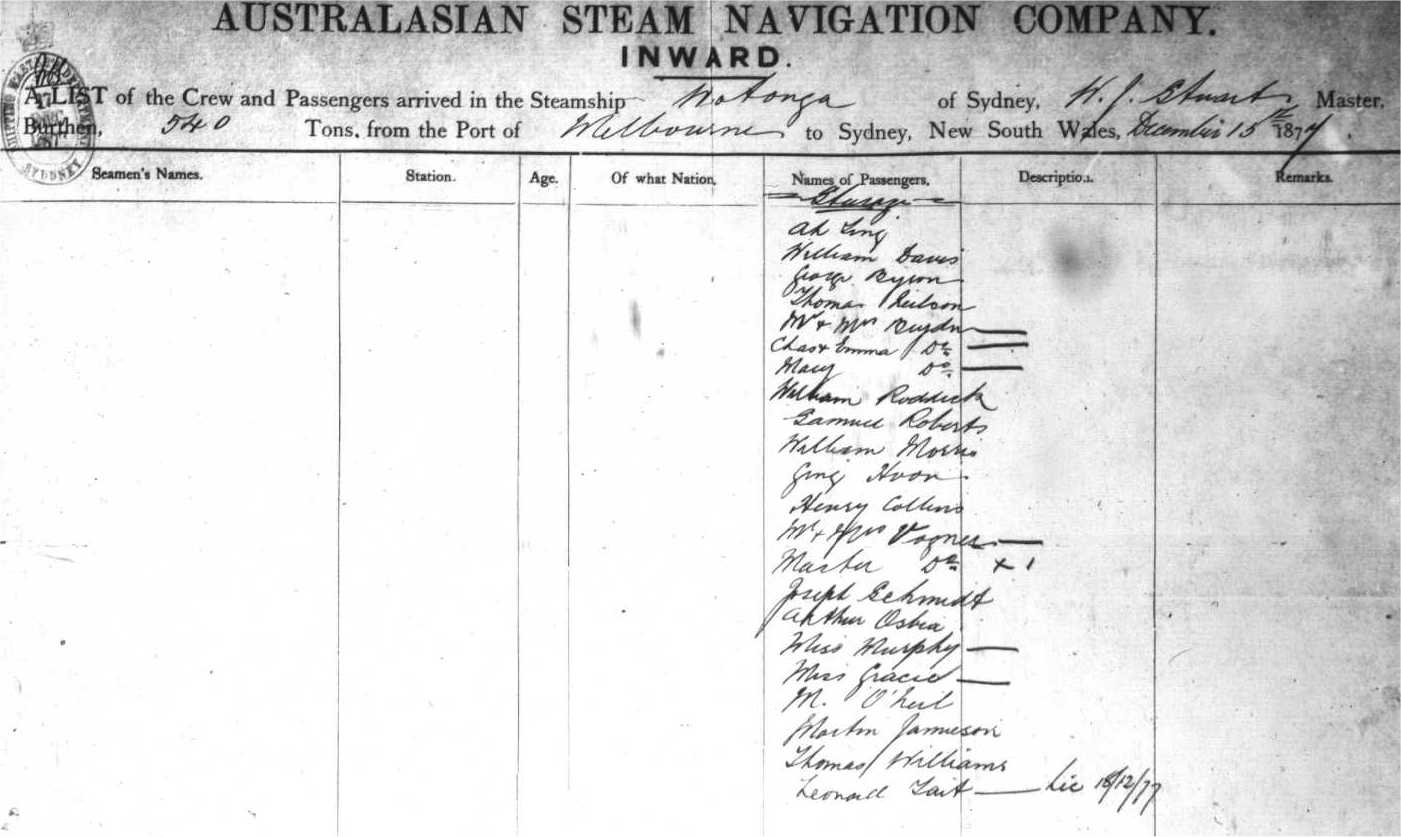 AUSTRALASIAN STEAM NAVIGATION COMPANY.
INWARD.
A LIST of the Crew and Passengers arrived in the Steamship Wotonga of Sydney, W. J. Stuart Master,
Burthen, 540 Tons, from the Port of Melbourne to Sydney, New South Wales, December 15th 1877.
Seamen's Names. Station. Age. Of what Nation. Names of Passengers. Description. Remarks.
Steerage
Ah Ling
William Davis
George Byron
Thomas Neilson
Mr & Mrs
Chas & Emma Do
Mary Do
William Roddick
Samuel Roberts
William Morris
Ging Hoon
Henry Collins
Mr & Mrs Vagner
Master Do × 1
Joseph Schmidt
Arthur
Miss Murphy
Miss Gracie
M. O'Neil
Martin Jamieson
Thomas Williams
Leonard Tait 18/12/77
SYDNEY